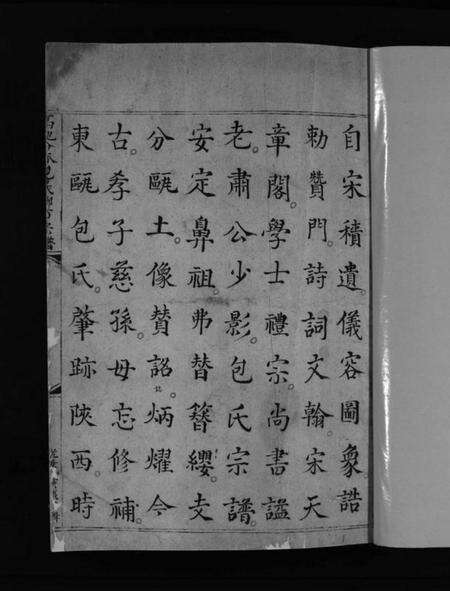 自宋積遺。儀容圖象誥
勅贊門。詩詞文翰。宋天
章閣。學士禮宗。尚書諡
老。肅公少影。包氏宗譜。
安定鼻祖。弗替簪纓。支
分甌土。像贊詔炳燿今
古。孝子慈孫。毋忘修補。
東甌包氏。肇跡陝西。時